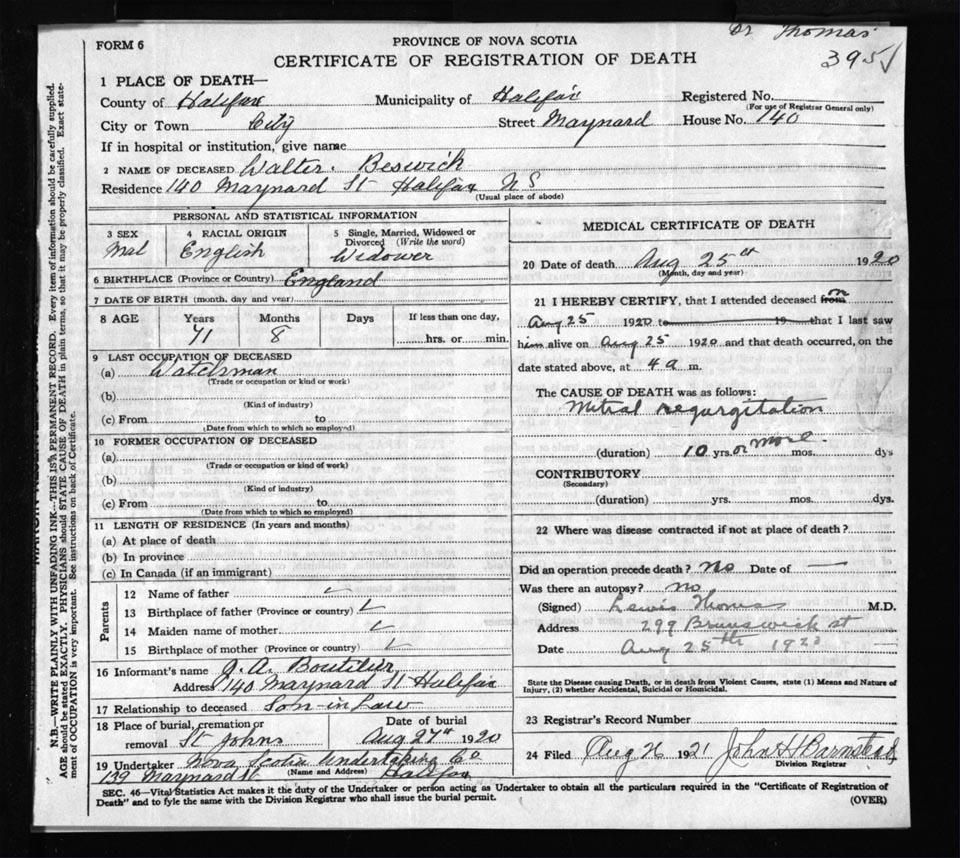 Dr Thomas
395
FORM 6
PROVINCE OF NOVA SCOTIA
CERTIFICATE OF REGISTRATION OF DEATH
1 PLACE OF DEATH—
County of Halifax Municipality of Halifax Registered No.
(For use of Registrar General only)
City or Town City Street Maynard House No. 140
If in hospital or institution, give name
2 NAME OF DECEASED Walter. Beswick
Residence 140 Maynard St Halifax N S
(Usual place of abode)
PERSONAL AND STATISTICAL INFORMATION
3 SEX 4 RACIAL ORIGIN 5 Single, Married, Widowed or
Divorced (Write the word)
Mal English Widower
6 BIRTHPLACE (Province or Country) England
7 DATE OF BIRTH (month, day and year)
8 AGE Years Months Days If less than one day,
71 8 hrs. or min.
9 LAST OCCUPATION OF DECEASED
(a) Watchman
(Trade or occupation or kind of work)
(b)
(Kind of industry)
(c) From to
(Date from which to which so employed)
10 FORMER OCCUPATION OF DECEASED
(a)
(Trade or occupation or kind of work)
(b)
(Kind of industry)
(c) From to
(Date from which to which so employed)
11 LENGTH OF RESIDENCE (In years and months)
(a) At place of death
(b) In province
(c) In Canada (if an immigrant)
Parents
12 Name of father ✓
13 Birthplace of father (Province or country) ✓
14 Maiden name of mother ✓
15 Birthplace of mother (Province or country) ✓
16 Informant's name J. A. Boutilier
Address 140 Maynard St Halifax
17 Relationship to deceased Son-in Law
18 Place of burial, cremation or Date of burial
removal St Johns Aug 27th 1920
19 Undertaker Nova Scotia Undertaking Co
139 Maynard St (Name and Address) Halifax
MEDICAL CERTIFICATE OF DEATH
20 Date of death Aug 25th 1920
(Month, day and year)
21 I HEREBY CERTIFY, that I attended deceased from on
Aug 25 1920 to 19 that I last saw
him alive on Aug 25 1920 and that death occurred, on the
date stated above, at 4 a m.
The CAUSE OF DEATH was as follows:
Mitral regurgitation
(duration) 10 yrs. or more. mos. dys
CONTRIBUTORY
(Secondary)
(duration) yrs. mos. dys.
22 Where was disease contracted if not at place of death?
Did an operation precede death? No Date of —
Was there an autopsy? No
(Signed) Lewis Thomas M.D.
Address 299 Brunswick st
Date Aug 25th 1920
State the Disease causing Death, or in death from Violent Causes, state (1) Means and Nature of
Injury, (2) whether Accidental, Suicidal or Homicidal.
23 Registrar's Record Number
24 Filed Aug 26 1921 John H Barnstead
Division Registrar
SEC. 46—Vital Statistics Act makes it the duty of the Undertaker or person acting as Undertaker to obtain all the particulars required in the "Certificate of Registration of
Death" and to fyle the same with the Division Registrar who shall issue the burial permit.
(OVER)
N.B.—WRITE PLAINLY WITH UNFADING INK—THIS IS A PERMANENT RECORD. Every item of information should be carefully supplied.
AGE should be stated EXACTLY. PHYSICIANS should STATE CAUSE OF DEATH in plain terms, so that it may be properly classified. Exact state-
ment of OCCUPATION is very important. See instructions on back of Certificate.